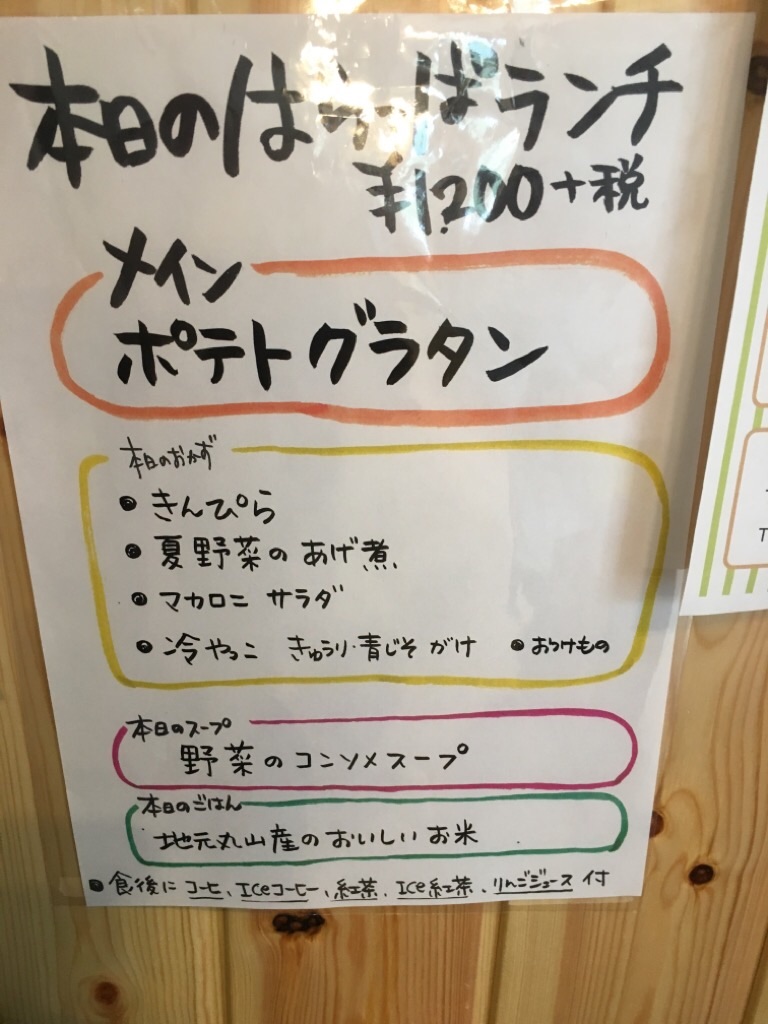 本日のはらっぱランチ
¥1,200+税
メイン
ポテトグラタン
本日のおかず
• きんぴら
• 夏野菜のあげ煮
• マカロニ サラダ
• 冷やっこ きゅうり・青じそ がけ • おつけもの
本日のスープ
野菜のコンソメスープ
本日のごはん
地元丸山産のおいしいお米
• 食後にコーヒ、Iceコーヒー、紅茶、Ice紅茶、りんごジュース付
T